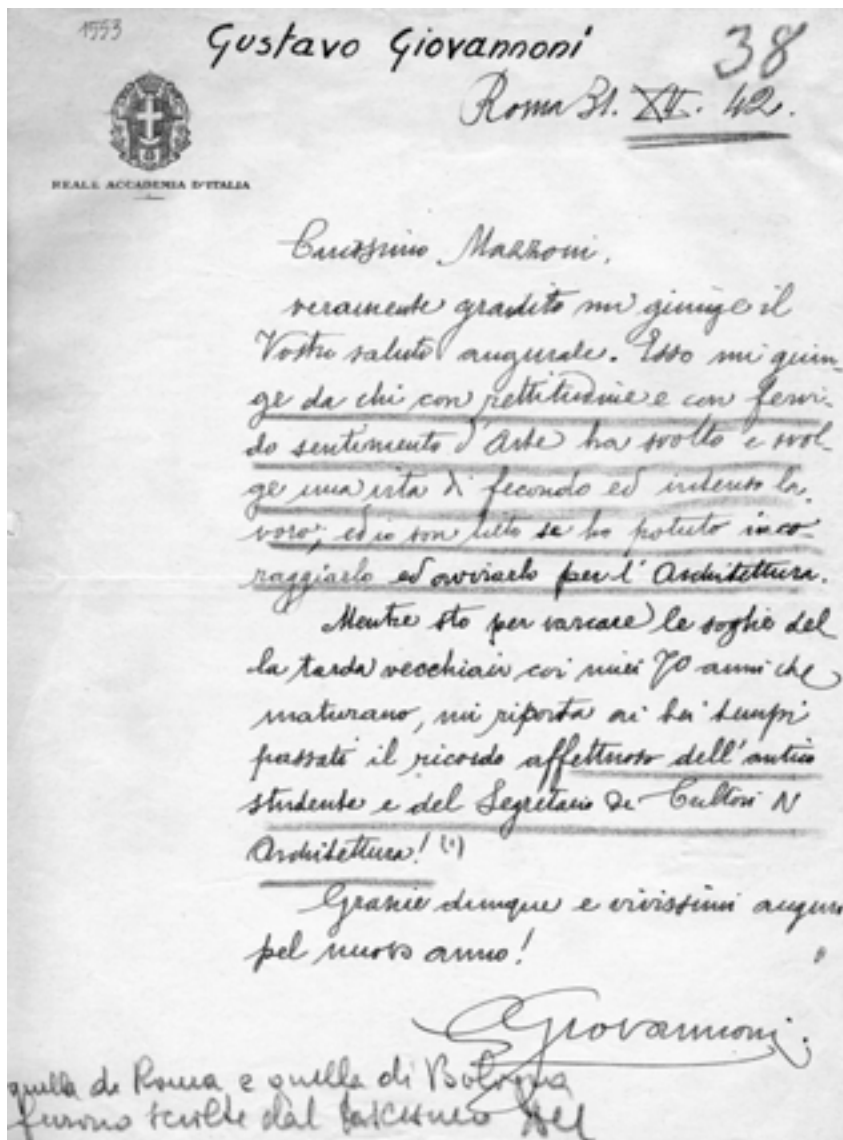 1553
Gustavo Giovannoni
38
Roma 31. XII. 42.
REALE ACCADEMIA D'ITALIA
Carissimo Mazzoni,
veramente gradito mi giunge il
Vostro saluto augurale. Esso mi giun-
ge da chi con rettitudine e con fervi-
do sentimento d'Arte ha svolto e svol-
ge una vita di fecondo ed intenso la-
voro; ed io son lieto se ho potuto inco-
raggiarlo ed avviarlo per l'Architettura.
Mentre sto per varcare le soglie del
la tarda vecchiaia coi miei 70 anni che
maturano, mi riporta ai bei tempi
passati il ricordo affettuoso dell'antico
studente e del Segretario dei Cultori
Architettura! (1)
Grazie dunque e vivissimi auguri
pel nuovo anno!
GGiovannoni.
quella di Roma e quella di Bologna
furono sciolte dal fascismo